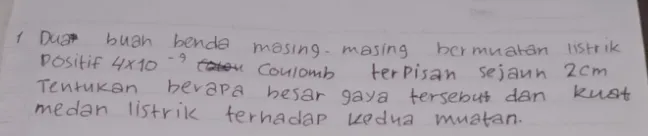 1 Dua buah benda masing-masing bermuatan listrik
Positif 4x10⁻⁹ Coulomb terpisan sejauh 2cm
Tentukan berapa besar gaya tersebut dan kuat
medan listrik terhadap kedua muatan.